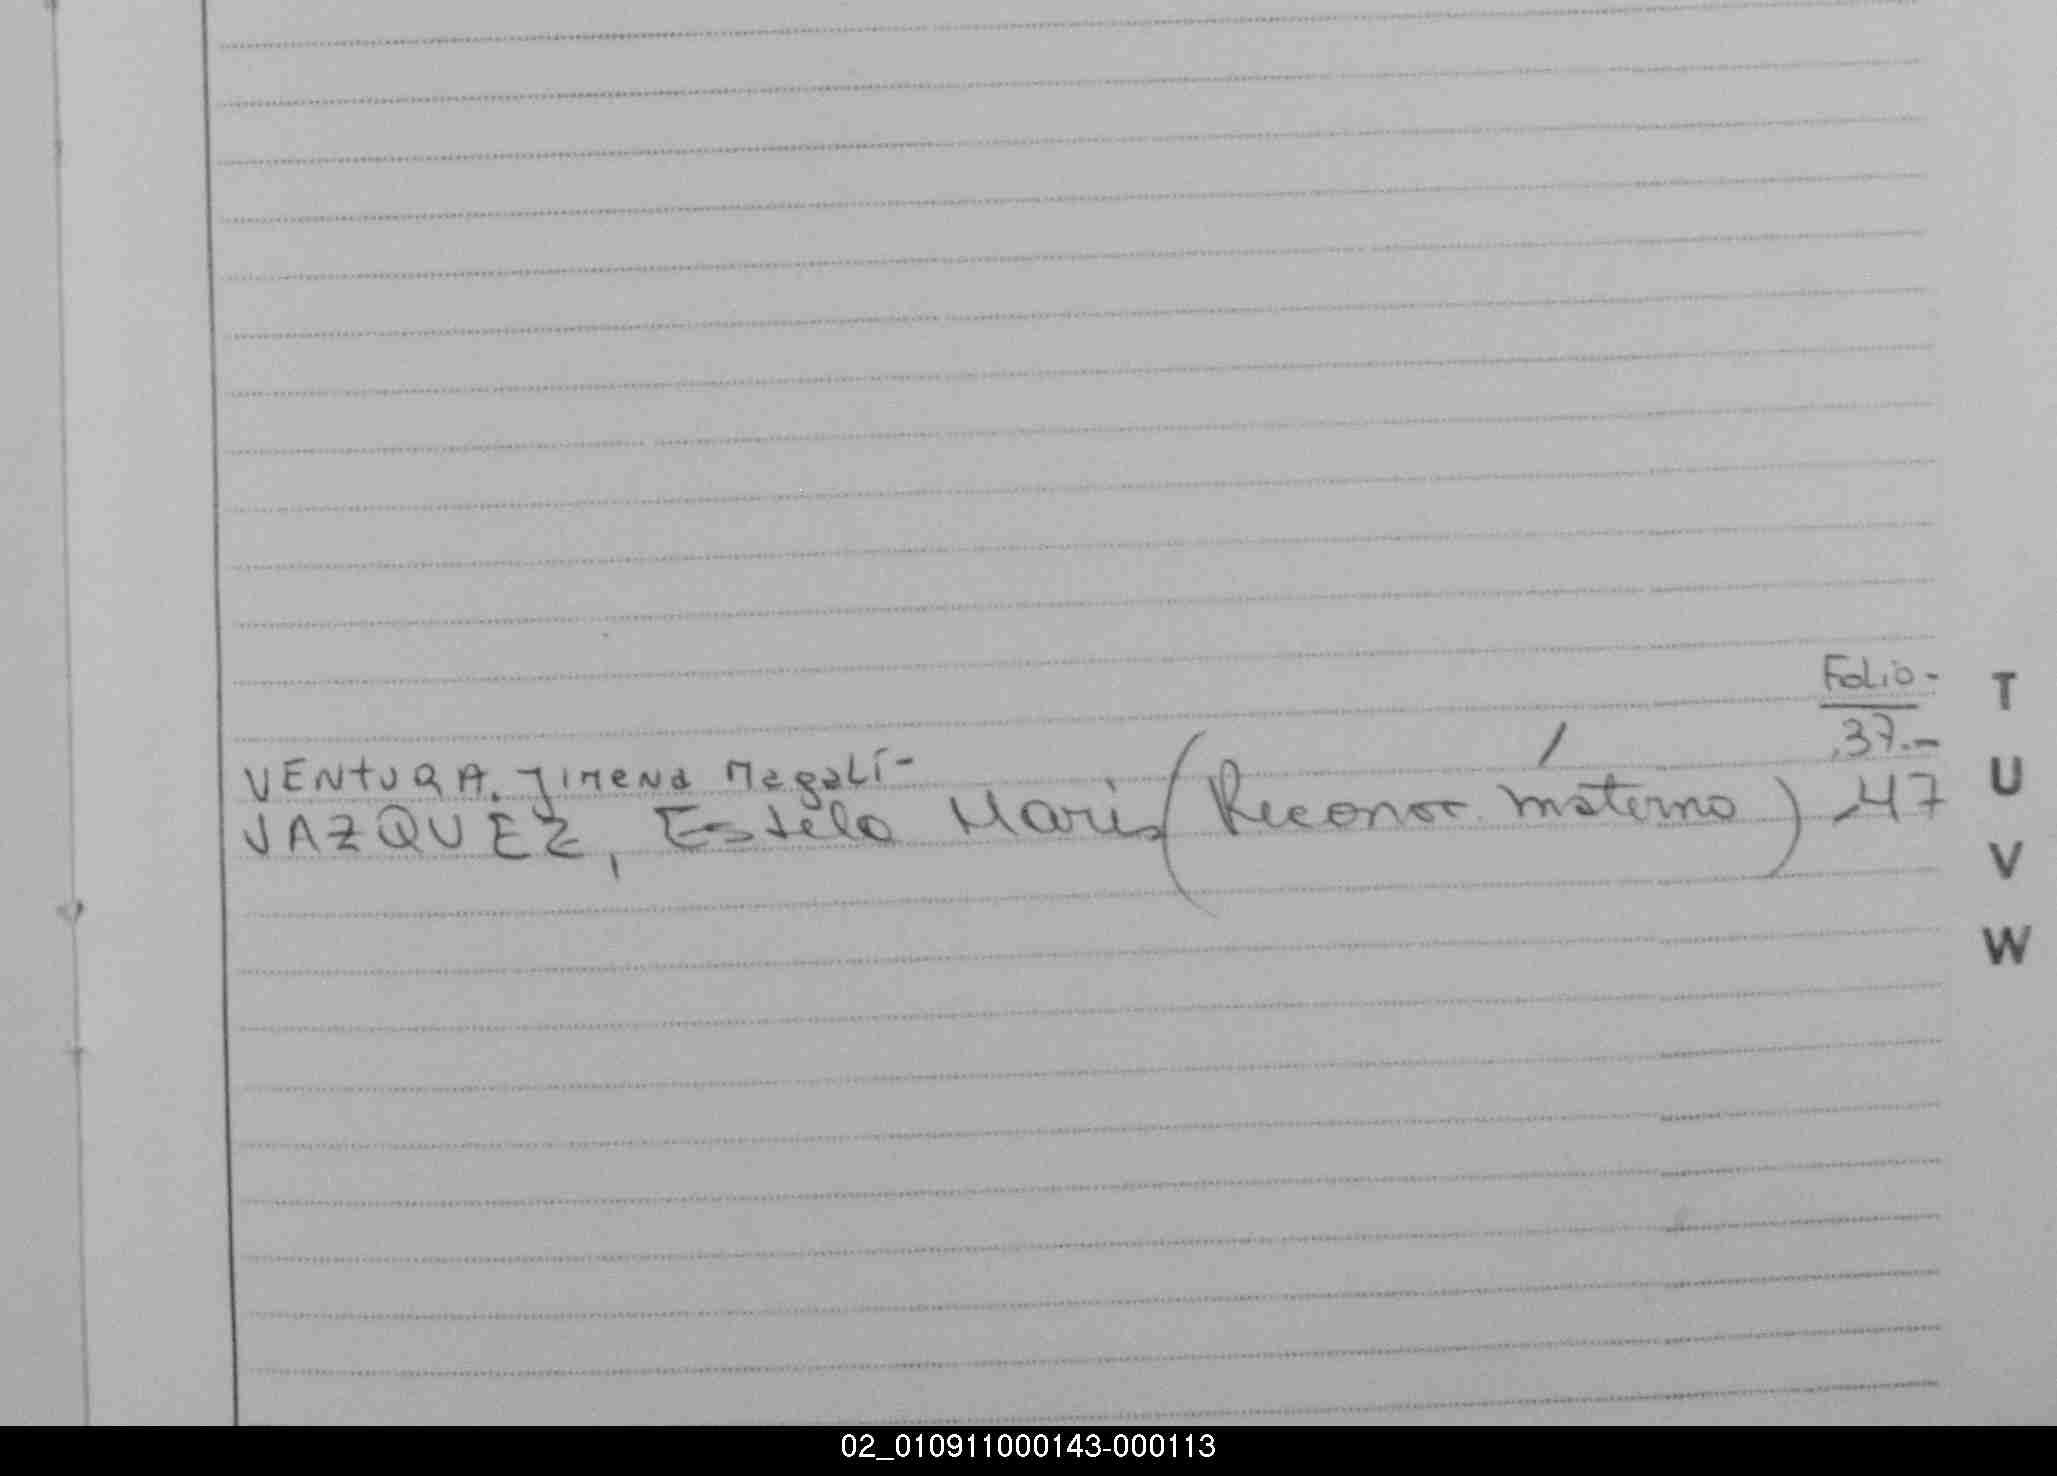 Folio-
T
37.-
VENTURA. Jimena Magalí-
U
VAZQUEZ, Estela Maris (Reconoc. materno) 47
V
W
02_010911000143-000113